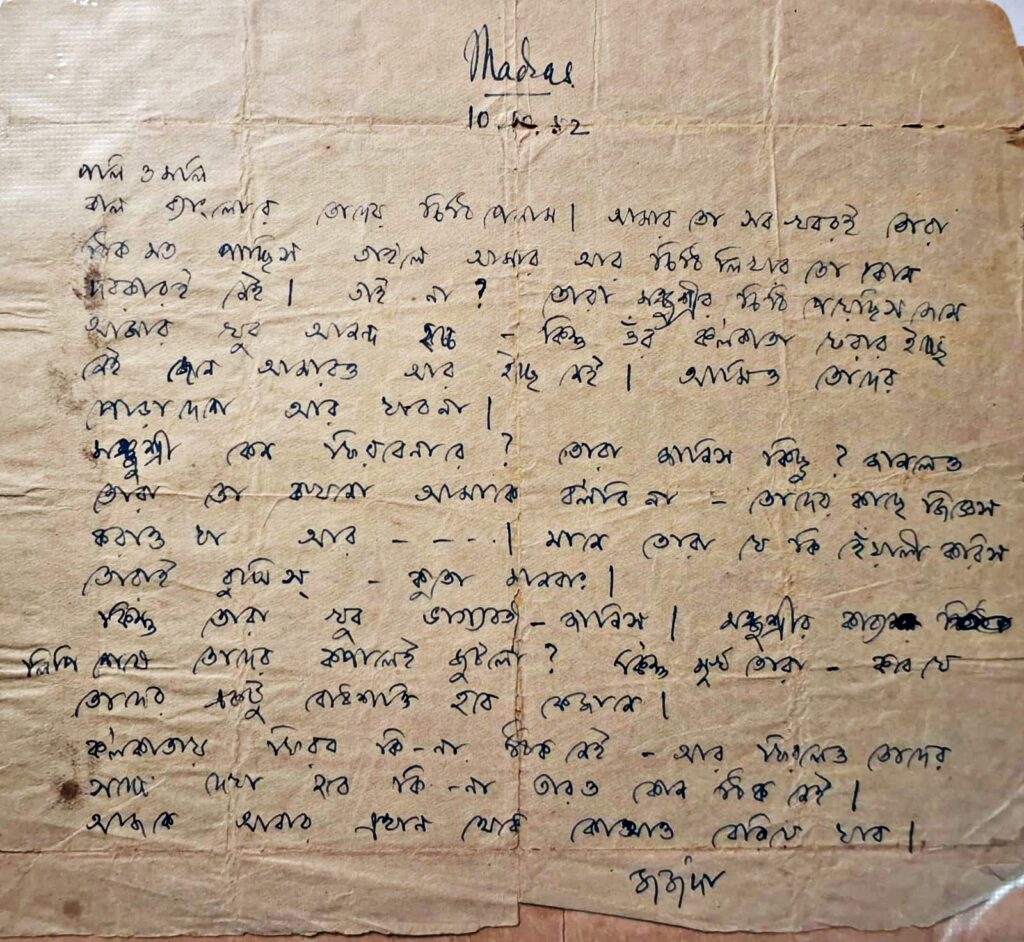 Madras
10.12.52
পলি ও মলি
কাল ব্যাংলোরে তোদের চিঠি পেলাম। আমার তো সব খবরই তোরা
ঠিক মত পাচ্ছিস তাহলে আমার আর চিঠি লিখার তো কোন
দরকারই নেই। তাই না? তোরা মঞ্জুশ্রীর চিঠি পেয়েছিস জেনে
আমার খুব আনন্দ হচ্ছে - কিন্তু ওঁর কলকাতা ফেরার ইচ্ছে
নেই জেনে আমারও আর ইচ্ছে নেই। আমিও তোদের
পোড়া দেশে আর যাবনা।
মঞ্জুশ্রী কেন ফিরবেনারে? তোরা জানিস কিছু? জানলেও
তোরা তো কখনো আমাকে বলবি না - তোদের কাছে জিজ্ঞেস
করাও যা আর - - - -। মানে তোরা যে কি হেঁয়ালী করিস
তোরাই বুঝিস্ -
কিন্তু তোরা খুব ভাগ্যবতী - জানিস। মঞ্জুশ্রীর
লিপি শেষে তোদের কপালেই জুটলো? কিন্তু মূর্খ তোরা - কবে যে
তোদের একটু বোধশক্তি হবে কেজানে।
কলকাতায় ফিরব কি-না ঠিক নেই - আর ফিরলেও তোদের
সঙ্গে দেখা হবে কি-না তারও কোন ঠিক নেই।
আজকে আবার এখান থেকে কোথাও বেরিয়ে যাব।